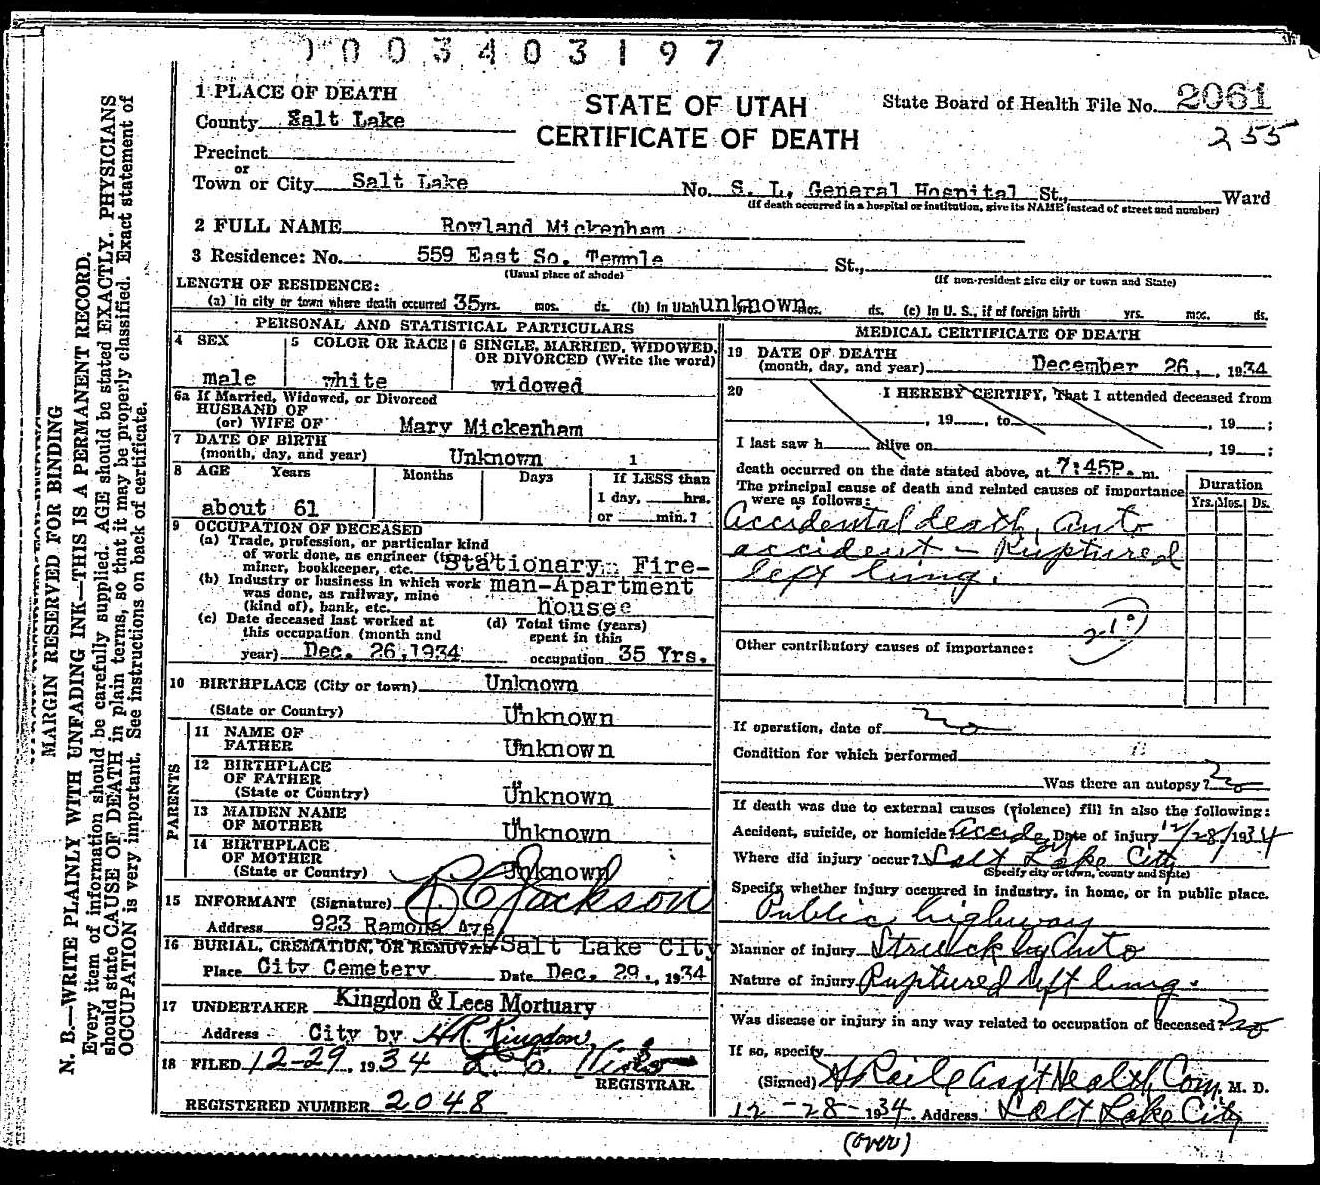 0003403197
1 PLACE OF DEATH
County Salt Lake
Precinct
or
Town or City Salt Lake
STATE OF UTAH
CERTIFICATE OF DEATH
State Board of Health File No. 2061
255
No. S. L. General Hospital St., Ward
(If death occurred in a hospital or institution, give its NAME instead of street and number)
2 FULL NAME Rowland Mickenham
3 Residence: No. 559 East So. Temple St.,
(Usual place of abode)
(If non-resident give city or town and State)
LENGTH OF RESIDENCE:
(a) In city or town where death occurred 35 yrs. mos. ds. (b) In Utah unknown mos. ds. (c) In U. S., if of foreign birth yrs. mos. ds.
PERSONAL AND STATISTICAL PARTICULARS
4 SEX
male
5 COLOR OR RACE
white
6 SINGLE, MARRIED, WIDOWED,
OR DIVORCED (Write the word)
widowed
6a If Married, Widowed, or Divorced
HUSBAND OF
(or) WIFE OF Mary Mickenham
7 DATE OF BIRTH
(month, day, and year) Unknown 1
8 AGE Years Months Days If LESS than
1 day, hrs.
or min.?
about 61
9 OCCUPATION OF DECEASED
(a) Trade, profession, or particular kind
of work done, as engineer
miner, bookkeeper, etc. Stationary Fire-
(b) Industry or business in which work man-Apartment
was done, as railway, mine
(kind of), bank, etc. house
(c) Date deceased last worked at
this occupation (month and
year) Dec. 26,1934
(d) Total time (years)
spent in this
occupation 35 Yrs.
10 BIRTHPLACE (City or town) Unknown
(State or Country) Unknown
PARENTS
11 NAME OF
FATHER Unknown
12 BIRTHPLACE
OF FATHER
(State or Country) Unknown
13 MAIDEN NAME
OF MOTHER Unknown
14 BIRTHPLACE
OF MOTHER
(State or Country) Unknown
15 INFORMANT (Signature) R C Jackson
Address 923 Ramona Ave
16 BURIAL, CREMATION, OR REMOVAL Salt Lake City
Place City Cemetery Date Dec. 29., 1934
17 UNDERTAKER Kingdon & Lees Mortuary
Address City by H R Kingdon
18 FILED 12-29, 1934
REGISTRAR.
REGISTERED NUMBER 2048
MEDICAL CERTIFICATE OF DEATH
19 DATE OF DEATH
(month, day, and year) December 26, , 1934
20 I HEREBY CERTIFY, That I attended deceased from
, 19 , to , 19 ;
I last saw h alive on , 19 ;
death occurred on the date stated above, at 7:45P. m.
The principal cause of death and related causes of importance
were as follows:
Duration
Yrs. Mos. Ds.
Accidental death, Auto
accident - Ruptured
left lung.
Other contributory causes of importance:
If operation, date of no
Condition for which performed
Was there an autopsy? No
If death was due to external causes (violence) fill in also the following:
Accident, suicide, or homicide Accident Date of injury 12/28/1934
Where did injury occur? Salt Lake City
(Specify city or town, county and State)
Specify whether injury occurred in industry, in home, or in public place.
Public highway
Manner of injury Struck by Auto
Nature of injury Ruptured left lung.
Was disease or injury in any way related to occupation of deceased? no
If so, specify
(Signed) Ass't Health Com. M. D.
12-28-1934. Address Salt Lake City
(over)
MARGIN RESERVED FOR BINDING
N. B.—WRITE PLAINLY WITH UNFADING INK—THIS IS A PERMANENT RECORD.
Every item of information should be carefully supplied. AGE should be stated EXACTLY. PHYSICIANS
should state CAUSE OF DEATH in plain terms, so that it may be properly classified. Exact statement of
OCCUPATION is very important. See instructions on back of certificate.